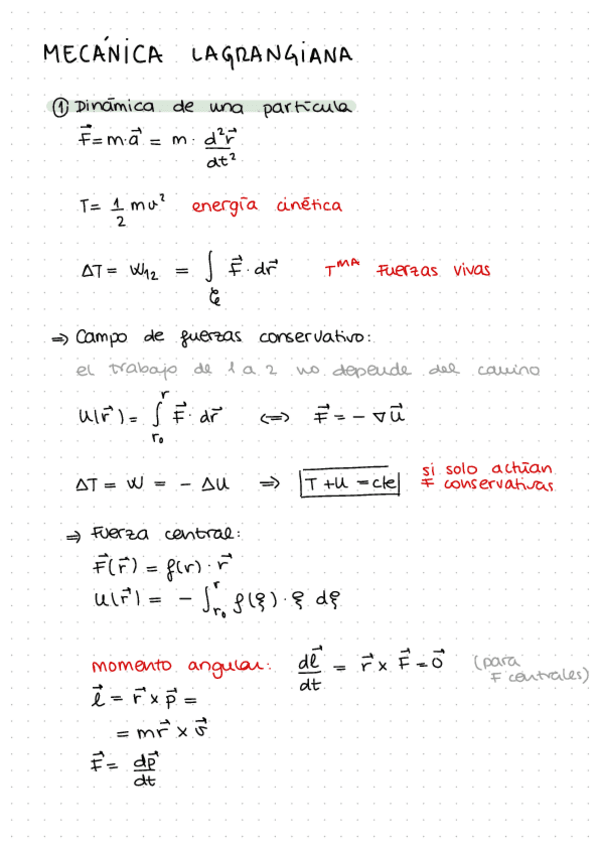 MECÁNICA LAGRANGIANA
① Dinámica de una partícula
F⃗ = m·a⃗ = m · d²r⃗/dt²
T = 1/2 mv² energía cinética
ΔT = W₁₂ = ∫_ℰ F⃗ · dr⃗ Tᴹᴬ Fuerzas vivas
⇒ Campo de fuerzas conservativo:
el trabajo de 1 a 2 no depende del camino
U(r⃗) = ∫_{r₀}^{r} F⃗ · dr⃗ ⟺ F⃗ = - ∇U⃗
ΔT = W = - ΔU ⇒ T + U = cte si solo actúan F conservativas
⇒ Fuerza central:
F⃗(r⃗) = f(r) · r⃗
U(r⃗) = - ∫_{r₀}^{r} f(ξ) · ξ dξ
momento angular: dℓ⃗/dt = r⃗ x F⃗ = 0⃗ (para F centrales)
ℓ⃗ = r⃗ x p⃗ =
= m r⃗ x v⃗
F⃗ = dp⃗/dt